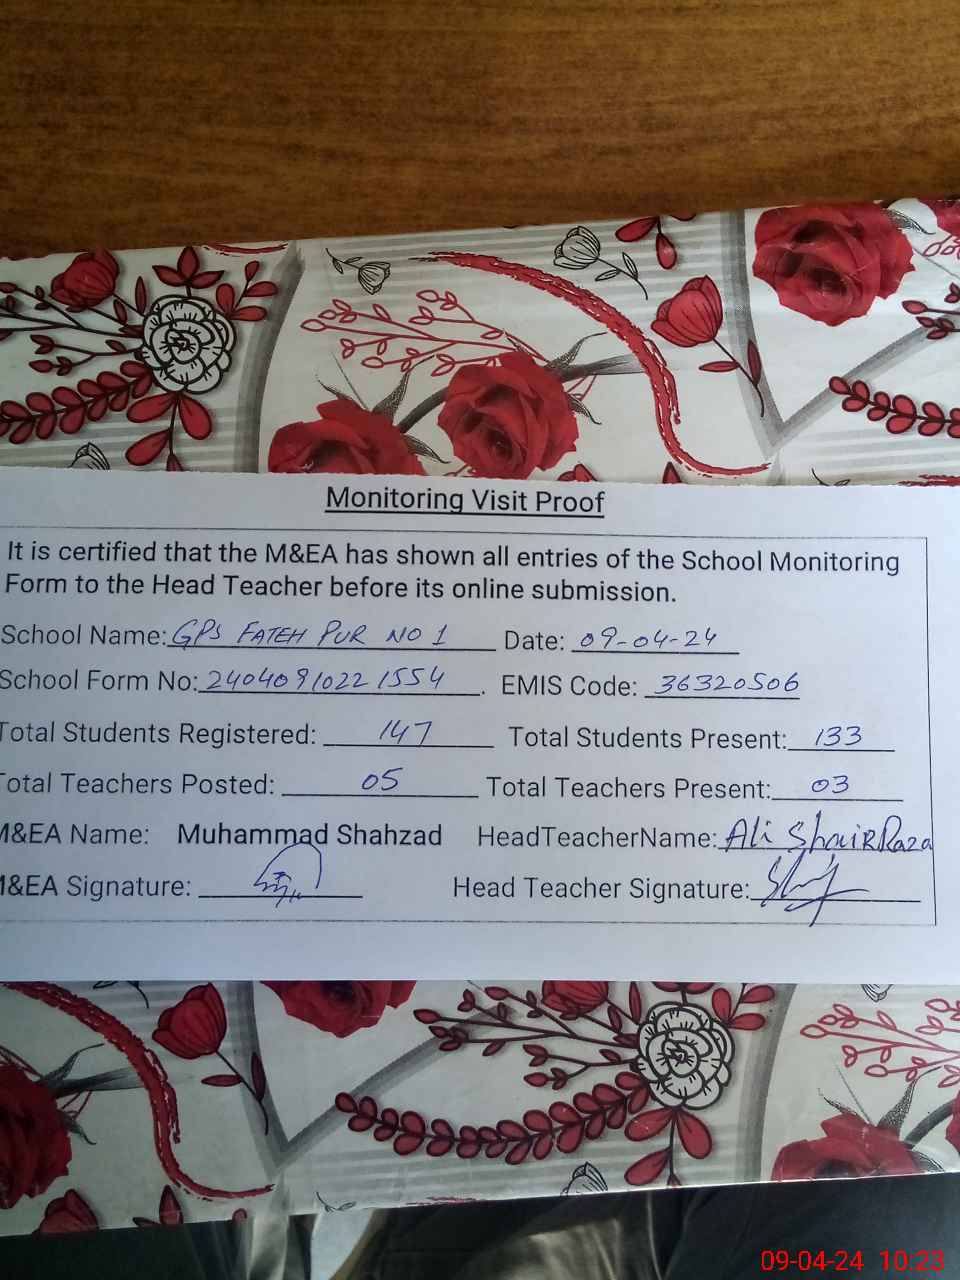 Monitoring Visit Proof
It is certified that the M&EA has shown all entries of the School Monitoring
Form to the Head Teacher before its online submission.
School Name: GPS FATEH PUR NO 1 Date: 09-04-24
School Form No: 24040910221554. EMIS Code: 36320506
Total Students Registered: 147 Total Students Present: 133
Total Teachers Posted: 05 Total Teachers Present: 03
M&EA Name: Muhammad Shahzad HeadTeacherName: Ali ShairRaza
M&EA Signature: Head Teacher Signature:
09-04-24 10:23